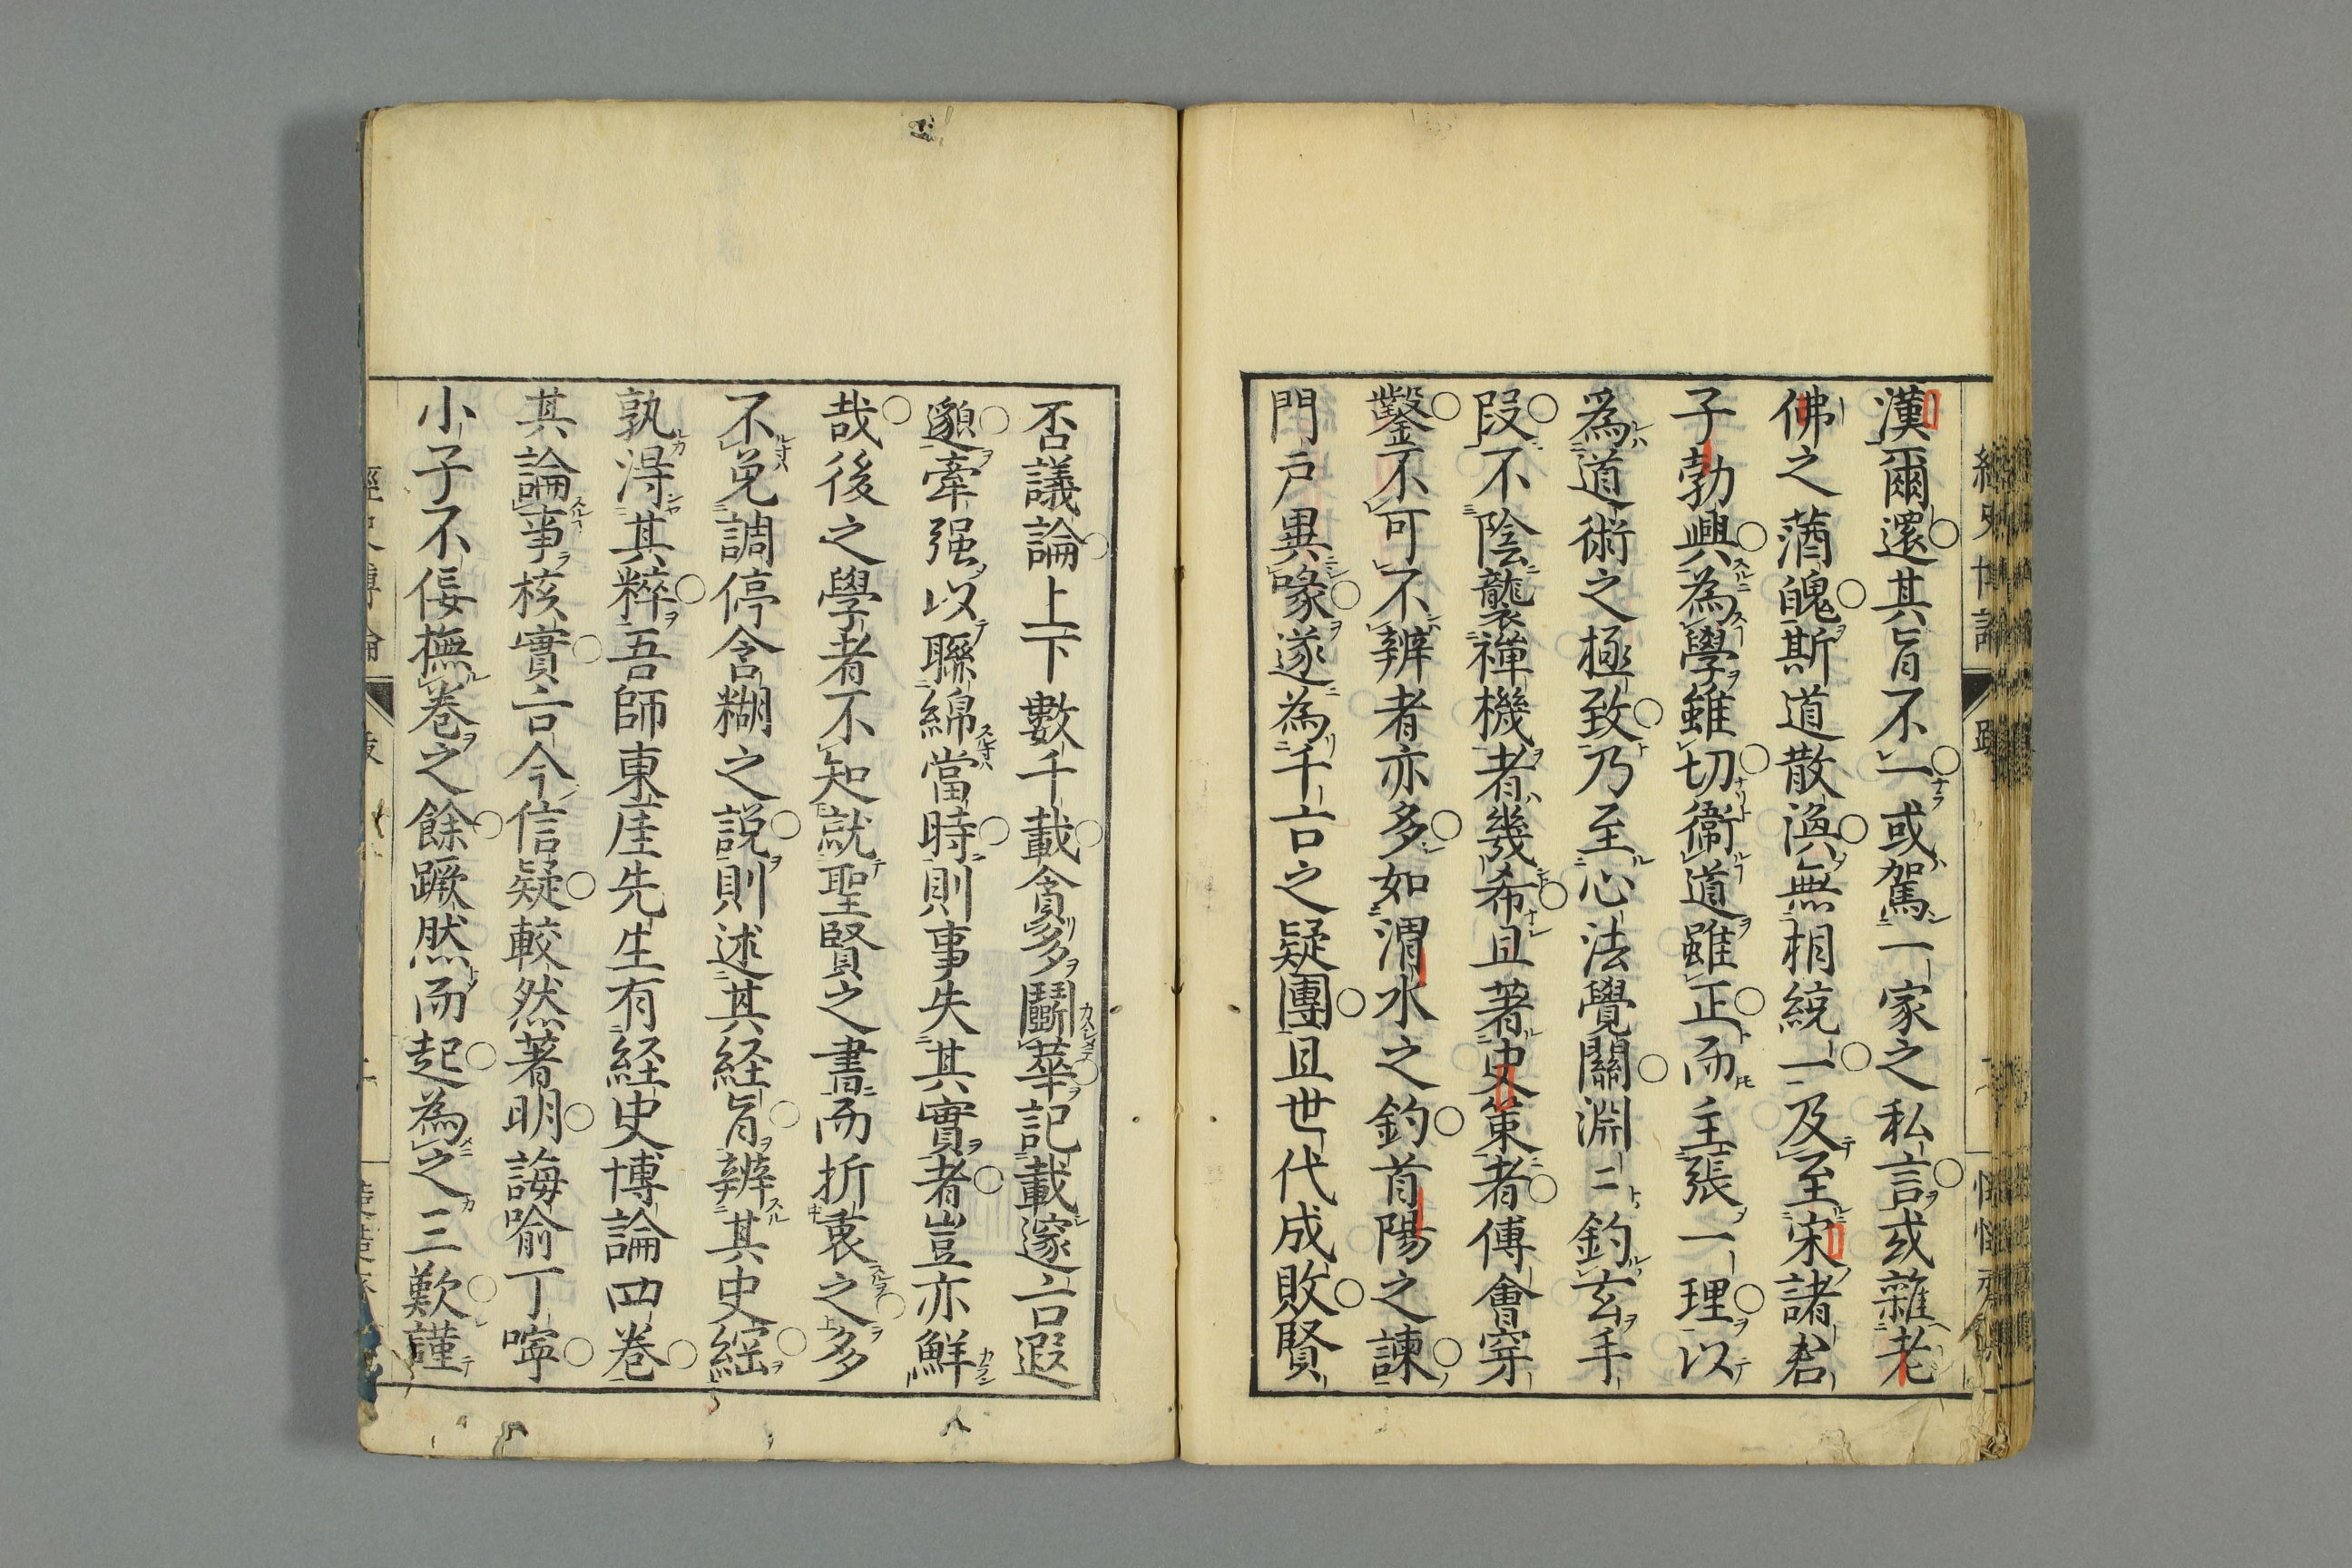 漢爾還其旨不一或駕一家之私言或雜老
佛之蕕醜斯道散渙無相統一及至宋諸君
子勃興為學雖切衞道雖正而主張一理以
爲道術之極致乃至心法覺關淵二釣玄手
段不陰襲禪機者幾希且著史策者傅會穿
鑿不可不辨者亦多如渭水之釣首陽之諫
門戸異喙遂為千古之疑團且世代成敗賢
否議論上下數千載貪多鬭華記載邃古遐
邈牽强以聯綿當時則事失其實者豈亦鮮
哉後之學者不知就聖賢之書而折衷之多
不免調停含糊之説則述其経旨辨其史綜
孰得其粹吾師東厓先生有経史博論四巻
其論事核實古今信疑較然著明誨喻丁嚀
小子不佞撫巻之餘蹶然而起為之三歎謹